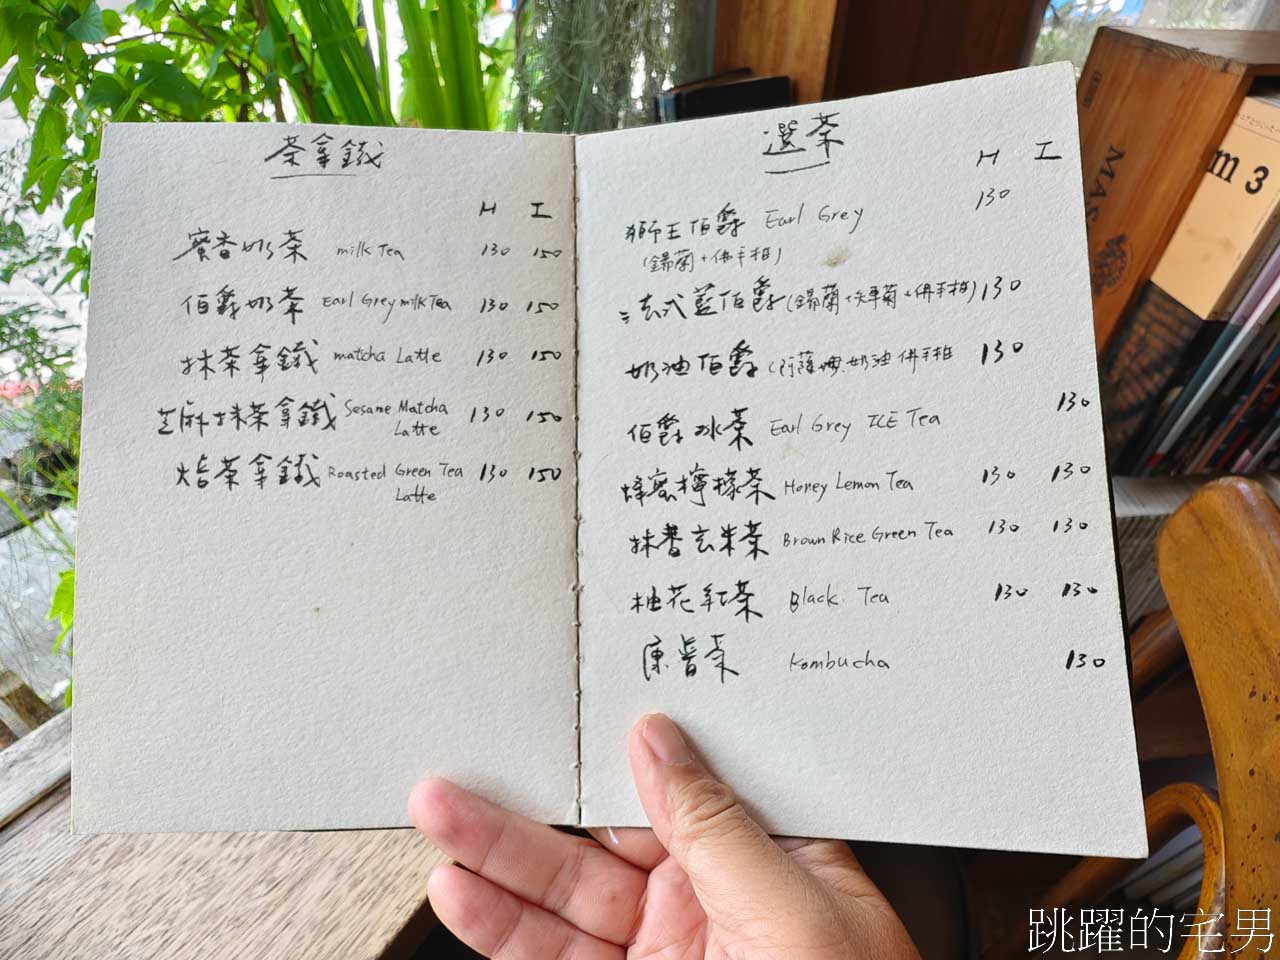 茶拿鐵
H I
蜜香奶茶 milk Tea 130 150
伯爵奶茶 Earl Grey milk Tea 130 150
抹茶拿鐵 matcha Latte 130 150
芝麻抹茶拿鐵 Sesame Matcha Latte 130 150
焙茶拿鐵 Roasted Green Tea Latte 130 150
選茶
H I
獅王伯爵 Earl Grey 130
(錫蘭+佛手柑)
法式藍伯爵(錫蘭+矢車菊+佛手柑) 130
奶油伯爵 (阿薩姆.奶油 佛手柑 130
伯爵冰茶 Earl Grey ICE Tea 130
蜂蜜檸檬茶 Honey Lemon Tea 130 130
抹香玄米茶 Brown Rice Green Tea 130 130
柚花紅茶 Black Tea 130 130
康普茶 Kombucha 130
MAS
m 3
跳躍的宅男